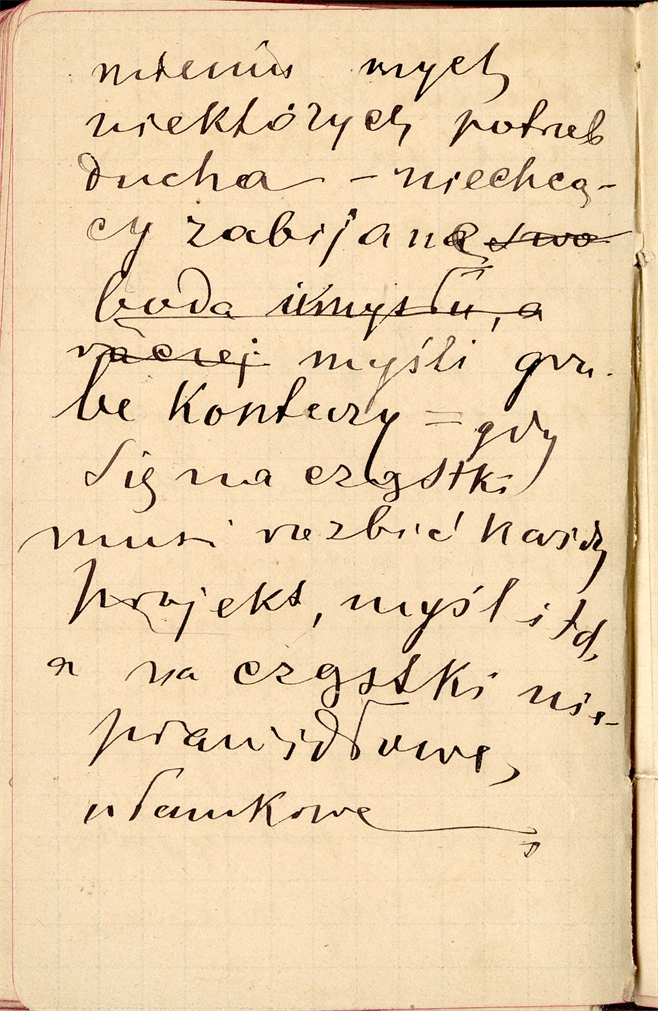 mieniu mych
niektórych potrzeb
ducha – niechcą-
cy zabijana swo
boda umysłu, a
raczej myśli gru-
be kontury = gdy
się na cząstki
musi rozbić każdy
projekt, myśl i td,
a na cząstki nie-
prawidłowe,
ułamkowe